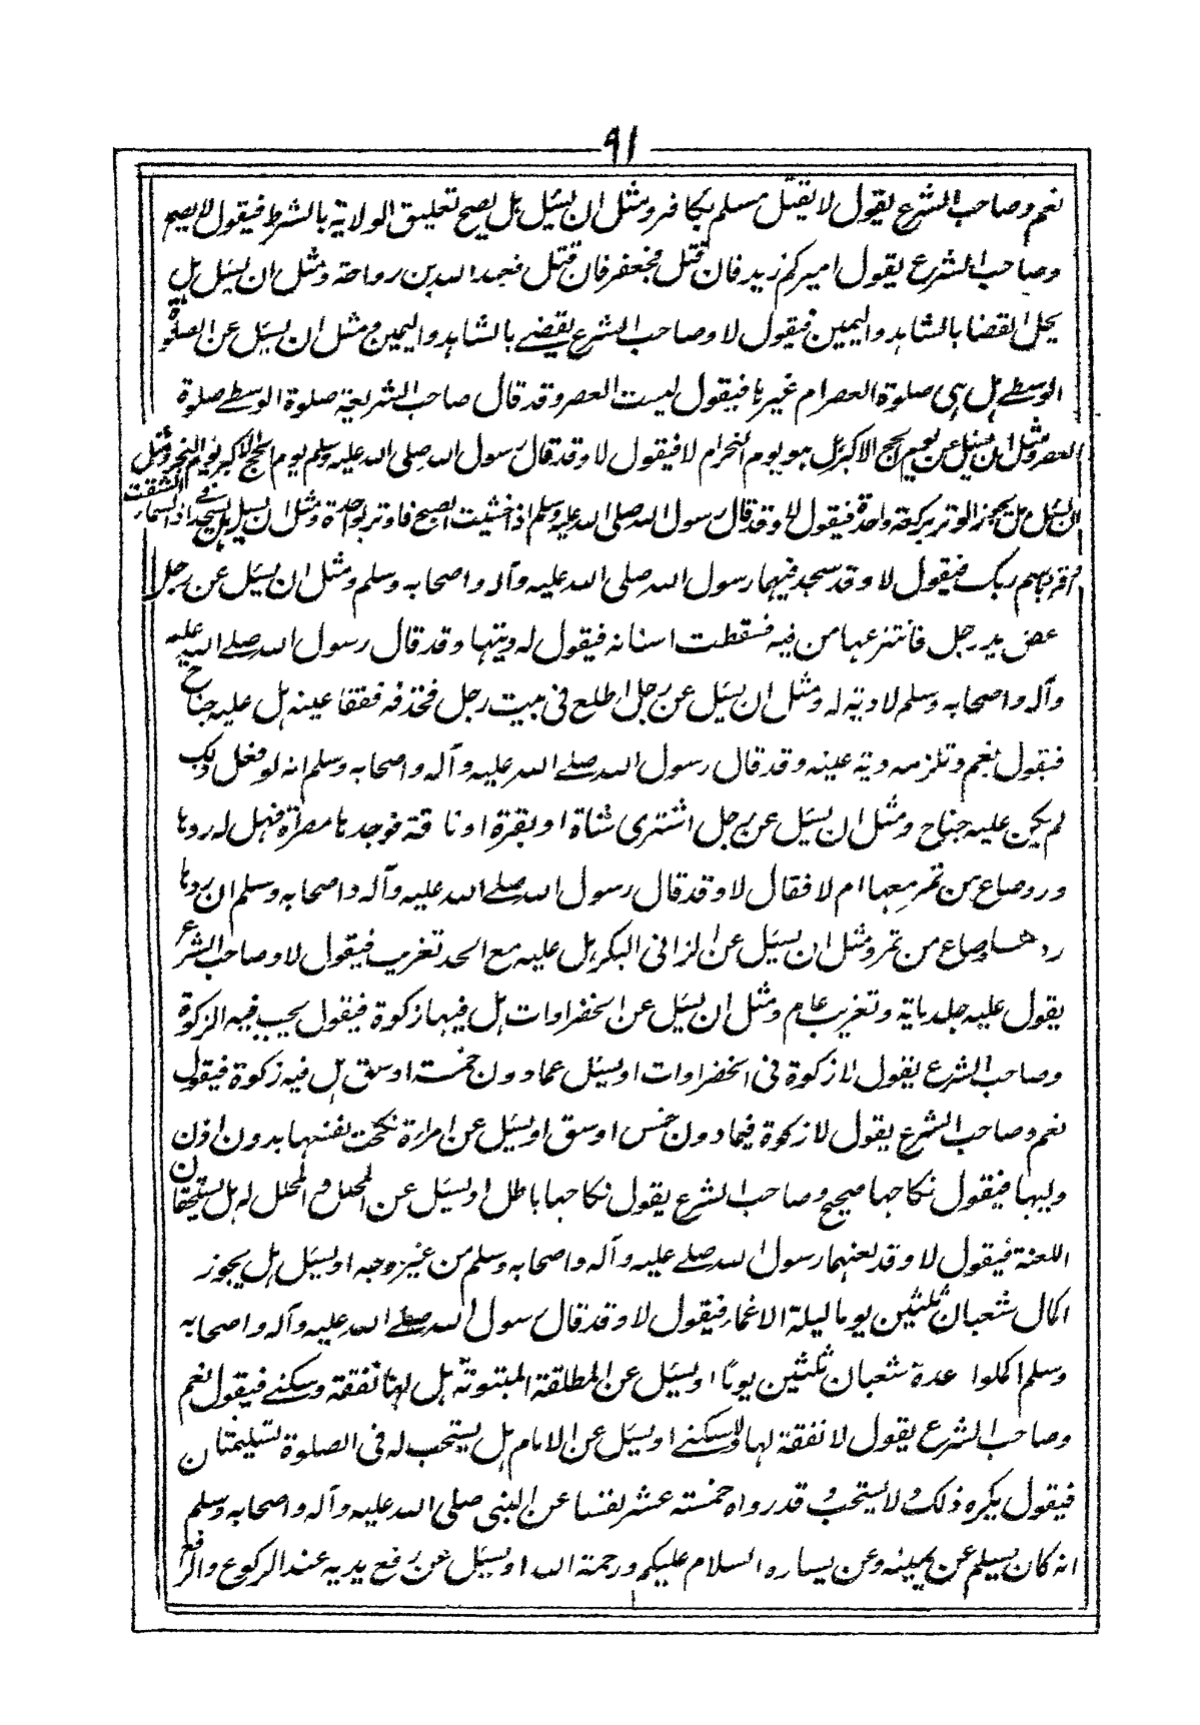 ٩١
نعم وصاحب الشرع يقول لا يقتل مسلم بكافر ومثل ان يسئل هل يصح تعليق الولاية بالشرط فيقول لا يصح
وصاحب الشرع يقول اميركم زيد فان قتل فجعفر فان قتل فعبد الله بن رواحة ومثل ان يسئل هل
يحل القضا بالشاهد واليمين فيقول لا وصاحب الشرع يقضے بالشاهد واليمين ومثل ان يسئل عن الصلوة
الوسطے هل هى صلوة العصر ام غيرها فيقول ليست العصر وقد قال صاحب الشريعة صلوة الوسطے صلوة
العصر ومثل ان يسئل عن يوم الحج الاكبر هل هو يوم النحر ام لا فيقول لا وقد قال رسول الله صلى الله عليه وسلم يوم الحج الاكبر يوم النحر ومثل
ان يسئل هل يجوز الوتر بركعة واحدة فيقول لا وقد قال رسول الله صلى الله عليه وسلم اذا خشيت الصبح فاوتر بواحدة ومثل ان يسئل هل يسجد فے اذا السماء انشقت
و اقرء باسم ربك فيقول لا وقد سجد فيها رسول الله صلى الله عليه وآله واصحابه وسلم ومثل ان يسئل عن رجل
عض يد رجل فانتزعها من فيه فسقطت اسنانه فيقول له ديتها وقد قال رسول الله صلے الله عليه
وآله واصحابه وسلم لا دية له ومثل ان يسئل عن رجل اطلع فى بيت رجل فخذفه ففقا عينه هل عليه جناح
فيقول نعم وتلزمه دية عينه وقد قال رسول الله صلے الله عليه وآله واصحابه وسلم انه لو فعل ذلك
لم يكن عليه جناح ومثل ان يسئل عن رجل اشترى شاة او بقرة او ناقة فوجدها مصراة فهل له ردها
ورد صاع من تمر معها ام لا فقال لا وقد قال رسول الله صلے الله عليه وآله واصحابه وسلم ان ردها
ردها وصاع من تمر ومثل ان يسئل عن الزانى البكر هل عليه مع الحد تغريب فيقول لا وصاحب الشرع
يقول عليه جلد ماية وتغريب عام ومثل ان يسئل عن الخضراوات هل فيها زكوة فيقول يجب فيه الزكوة
وصاحب الشرع يقول لا زكوة فى الخضراوات او يسئل عما دون خمسة اوسق هل فيه زكوة فيقول
نعم وصاحب الشرع يقول لا زكوة فيما دون خمس اوسق او يسئل عن امراة نكحت نفسها بدون اذن
وليها فيقول نكاحها صحيح وصاحب الشرع يقول نكاحها باطل او يسئل عن المحلل والمحلل له هل يستحقان
اللعنة فيقول لا وقد لعنهما رسول الله صلے عليه وآله واصحابه وسلم من غير وجه او يسئل هل يجوز
اكمال شعبان ثلثين يوما ليلة الاغماء فيقول لا وقد قال رسول الله صلے الله عليه وآله واصحابه
وسلم اكملوا عدة شعبان ثلثين يوما او يسئل عن المطلقة المبتوتة هل لها نفقة وسكنے فيقول نعم
وصاحب الشرع يقول لا نفقة لها ولا سكنے او يسئل عن الامام هل يستحب له فى الصلوة تسليمتان
فيقول يكره ذلك ولا يستحب وقد رواه خمسة عشر نفسا عن النبى صلى الله عليه وآله واصحابه وسلم
انه كان يسلم عن يمينه وعن يساره السلام عليكم ورحمة الله او يسئل عن رفع يديه عند الركوع والرفع